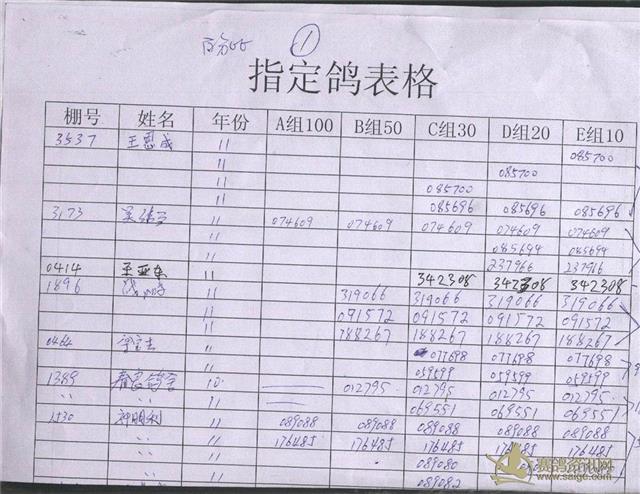 百分比 ①
指定鸽表格
棚号 姓名 年份 A组100 B组50 C组30 D组20 E组10
3537 王恩成 11 085700
11 085700
11 085700
11 085696 085696 085696
3173 11 074609 074609 074609 074609 074609
11 085694 085694
237966 237916
0414 王亚东 11 342308 342308 342308
1896 11 319066 319066 319066 319066
11 091572 091572 091572 091572
11 188267 188267 188267 188267
0464 11 077698 077698 077698
11 059599 059599 059599
1389 10 012795 012795 012795 012795
〃 11 069551 069551 069551
1530 神明利 11 089088 089088 089088 089088 089088
〃 〃 176485 176485 176485 176485 176485
〃 〃 089080
〃 089082
赛鸽资讯网
www.saige.com